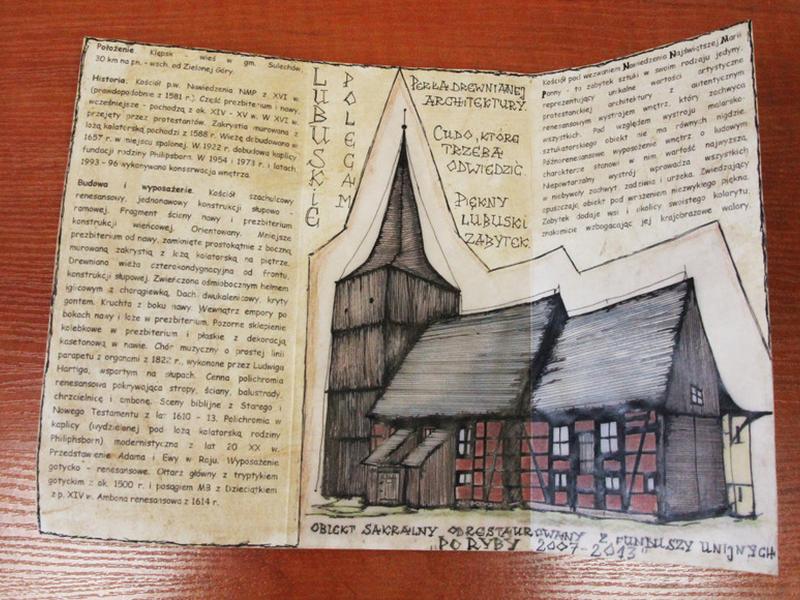 Położenie Klępsk - wieś w gm. Sulechów,
30 km na pn. - wsch. od Zielonej Góry.
Historia: Kościół p.w. Nawiedzenia NMP z XVI w.
(prawdopodobnie z 1581 r.). Część prezbiterium i nawy
wcześniejsze - pochodzą z ok. XIV - XV w. W XVI w.
przejęty przez protestantów. Zakrystia murowana z
lożą kolatorską pochodzi z 1588 r. Wieżę dobudowano w
1657 r. w miejscu spalonej. W 1922 r. dobudowa kaplicy
fundacji rodziny Philipsborn. W 1954 i 1973 r. i latach
1993 - 96 wykonywano konserwację wnętrza.
Budowa i wyposażenie. Kościół szachulcowy
renesansowy, jednonawowy konstrukcji słupowo -
ramowej. Fragment ściany nawy i prezbiterium
konstrukcji wieńcowej. Orientowany. Mniejsze
prezbiterium od nawy, zamknięte prostokątnie z boczną
murowaną zakrystią z lożą kolatorską na piętrze.
Drewniana wieża czterokondygnacyjna od frontu,
konstrukcji słupowej. Zwieńczona ośmiobocznym hełmem
iglicowym z chorągiewką. Dach dwukalenicowy, kryty
gontem. Kruchta z boku nawy. Wewnątrz empory po
bokach nawy i loże w prezbiterium. Pozorne sklepienie
kolebkowe w prezbiterium i płaskie z dekoracją
kasetonową w nawie. Chór muzyczny o prostej linii
parapetu z organami z 1822 r., wykonane przez Ludwiga
Hartiga, wspartym na słupach. Cenna polichromia
renesansowa pokrywająca stropy, ściany, balustrady,
chrzcielnicę i ambonę. Sceny biblijne z Starego i
Nowego Testamentu z lat 1610 - 13. Polichromia w
kaplicy (wydzielonej pod lożą kolatorską rodziny
Philiphsborn) modernistyczna z lat 20 XX w.
Przedstawienie Adama i Ewy w Raju. Wyposażenie
gotycko - renesansowe. Ołtarz główny z tryptykiem
gotyckim z ok. 1500 r. i posągiem MB z Dzieciątkiem
z p. XIV w. Ambona renesansowa z 1614 r.
LUBUSKIE
POLECAM
PERŁA DREWNIANEJ
ARCHITEKTURY.
CUDO, KTÓRE
TRZEBA
ODWIEDZIĆ.
PIĘKNY
LUBUSKI
ZABYTEK.
Kościół pod wezwaniem Nawiedzenia Najświętszej Marii
Panny - to zabytek sztuki w swoim rodzaju jedyny,
reprezentujący unikalne wartości artystyczne
protestanckiej architektury z autentycznym
renesansowym wystrojem wnętrz, który zachwyca
wszystkich. Pod względem wystroju malarsko-
sztukatorskiego obiekt nie ma równych nigdzie.
Późnorenesansowe wyposażenie wnętrz o ludowym
charakterze stanowi w nim wartość najwyższą.
Niepowtarzalny wystrój wprowadza wszystkich
w niebywały zachwyt, zadziwia i urzeka. Zwiedzający
opuszczają obiekt pod wrażeniem niezwykłego piękna.
Zabytek dodaje wsi i okolicy swoistego kolorytu,
znakomicie wzbogacając jej krajobrazowe walory.
OBIEKT SAKRALNY ODRESTAUROWANY Z FUNDUSZY UNIJNYCH
"PO RYBY 2007-2013"